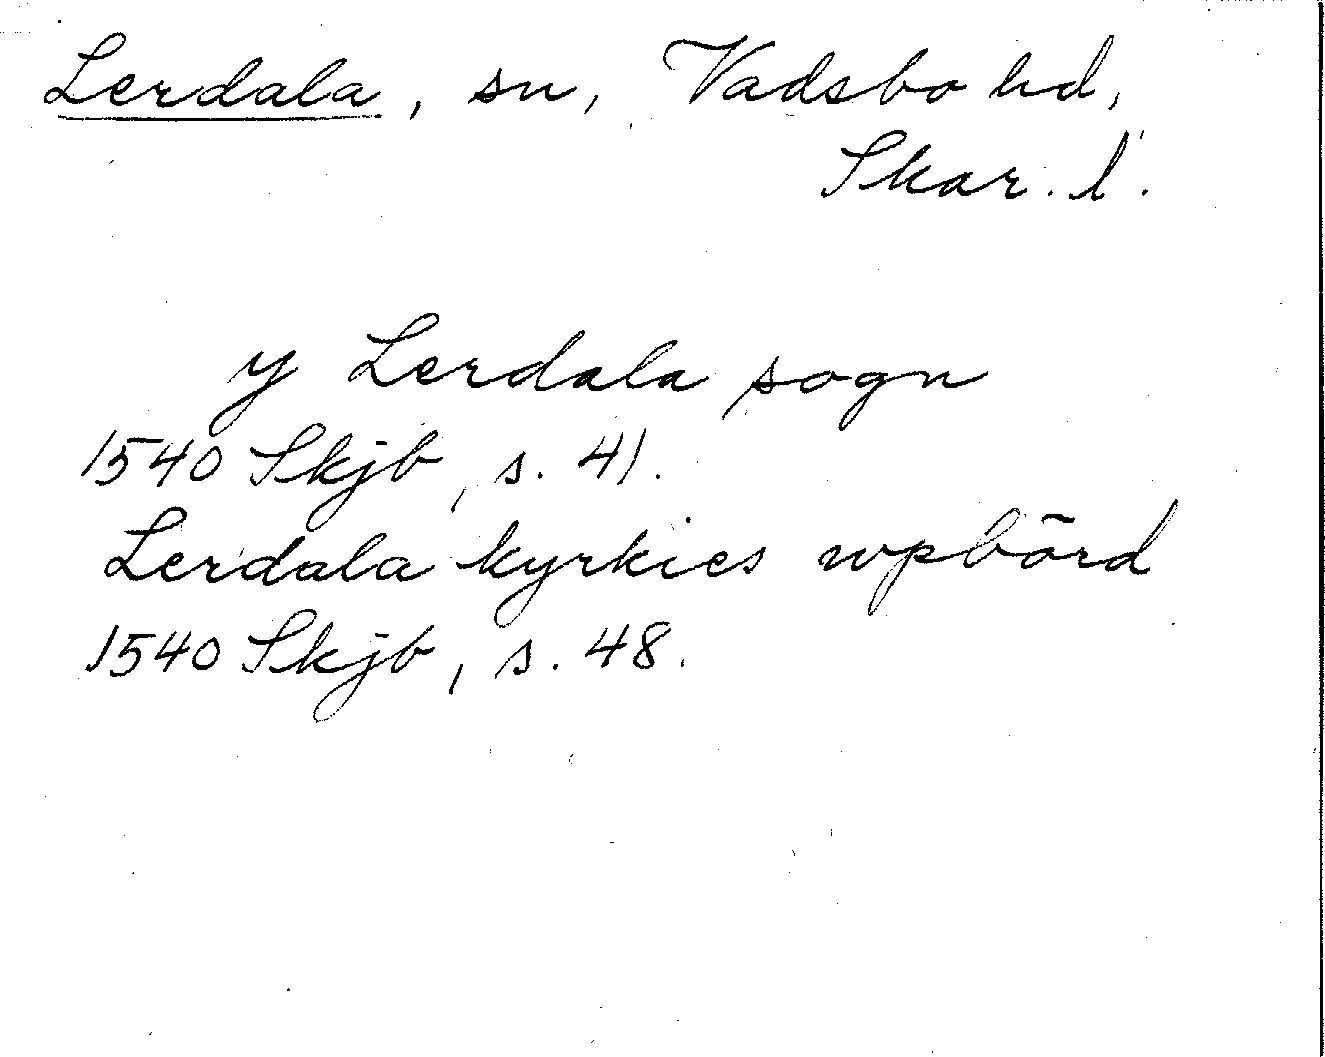 Lerdala, sn, Vadsbo hd,
Skar. l.
y Lerdala sogn
1540 Skjb, s. 41.
Lerdala kyrkies wpbörd
1540 Skjb, s. 48.